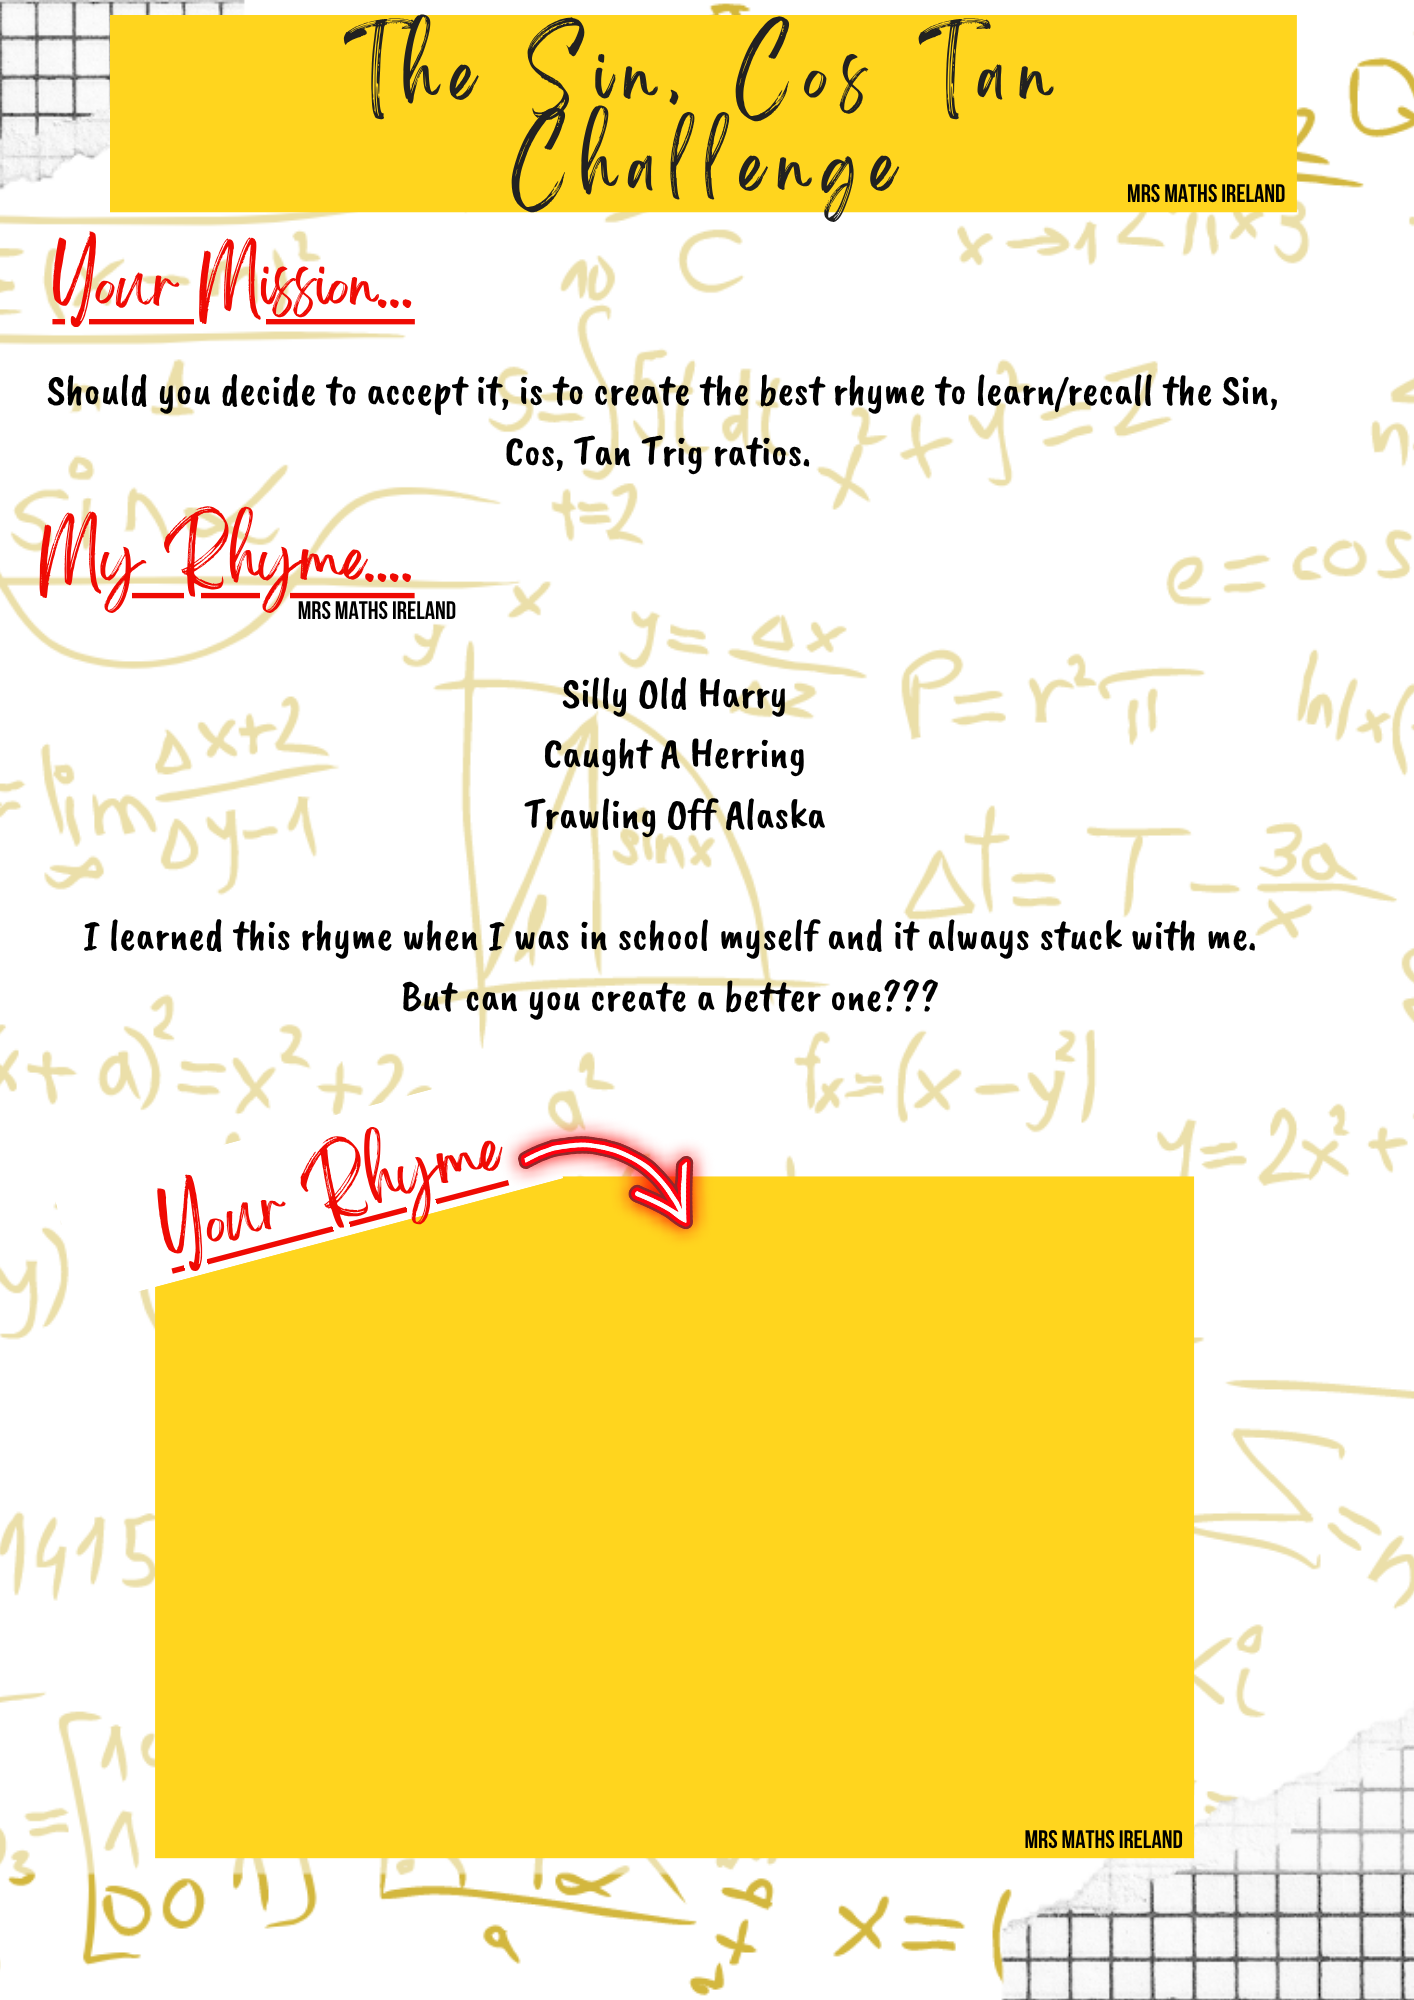 The Sin, Cos Tan
Challenge
MRS MATHS IRELAND
Your Mission...
Should you decide to accept it, is to create the best rhyme to learn/recall the Sin,
Cos, Tan Trig ratios.
My Rhyme....
MRS MATHS IRELAND
Silly Old Harry
Caught A Herring
Trawling Off Alaska
I learned this rhyme when I was in school myself and it always stuck with me.
But can you create a better one???
Your Rhyme
MRS MATHS IRELAND